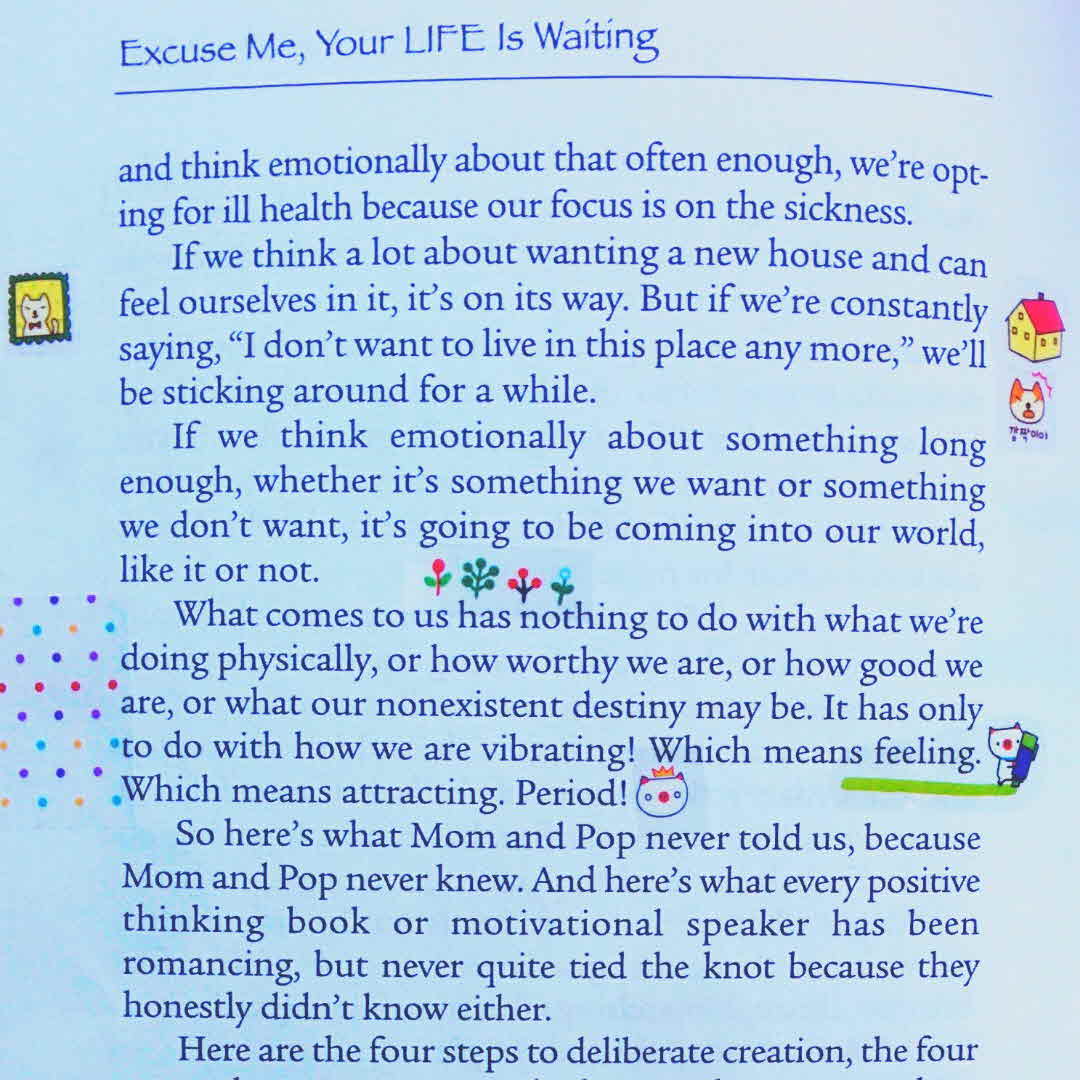 Excuse Me, Your LIFE Is Waiting
and think emotionally about that often enough, we're opt-
ing for ill health because our focus is on the sickness.
If we think a lot about wanting a new house and can
feel ourselves in it, it's on its way. But if we're constantly
saying, “I don't want to live in this place any more,” we'll
be sticking around for a while.
깜짝이야
If we think emotionally about something long
enough, whether it's something we want or something
we don't want, it's going to be coming into our world,
like it or not.
What comes to us has nothing to do with what we're
doing physically, or how worthy we are, or how good we
are, or what our nonexistent destiny may be. It has only
to do with how we are vibrating! Which means feeling.
Which means attracting. Period!
So here's what Mom and Pop never told us, because
Mom and Pop never knew. And here's what every positive
thinking book or motivational speaker has been
romancing, but never quite tied the knot because they
honestly didn't know either.
Here are the four steps to deliberate creation, the four